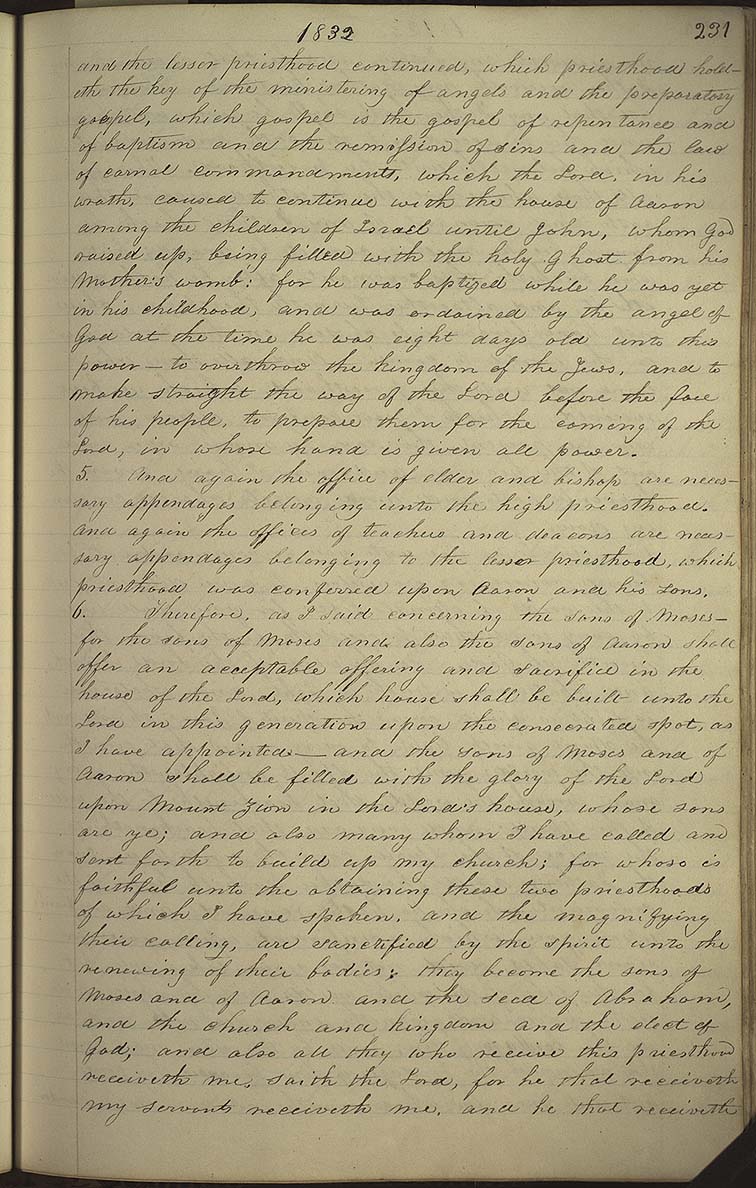 1832
231
and the lesser priesthood continued, which priesthood hold-
eth the key of the ministering of angels and the preparatory
gospel, which gospel is the gospel of repentance and
of baptism and the remission of sins and the law
of carnal commandments, which the Lord, in his
wrath, caused to continue with the house of Aaron
among the children of Israel until John, whom God
raised up, being filled with the holy Ghost from his
Mother's womb: for he was baptized while he was yet
in his childhood, and was ordained by the angel of
God at the time he was eight days old unto this
power — to overthrow the kingdom of the Jews, and to
make straight the way of the Lord before the face
of his people, to prepare them for the coming of the
Lord, in whose hand is given all power.
5. And again the office of elder and bishop are neces-
sary appendages belonging unto the high priesthood.
And again the offices of teachers and deacons are neces-
sary appendages belonging to the lesser priesthood, which
priesthood was conferred upon Aaron and his sons.
6. Therefore, as I said concerning the sons of Moses—
for the sons of Moses and also the sons of Aaron shall
offer an acceptable offering and sacrifice in the
house of the Lord, which house shall be built unto the
Lord in this generation upon the consecrated spot, as
I have appointed — and the sons of Moses and of
Aaron shall be filled with the glory of the Lord
upon Mount Zion in the Lord's house, whose sons
are ye; and also many whom I have called and
sent forth to build up my church; for whoso is
faithful unto the obtaining these two priesthoods
of which I have spoken, and the magnifying
their calling, are sanctified by the spirit unto the
renewing of their bodies; they become the sons of
Moses and of Aaron and the seed of Abraham,
and the church and kingdom and the elect of
God; and also all they who receive this priesthood
receiveth me, saith the Lord, for he that receiveth
my servants receiveth me, and he that receiveth